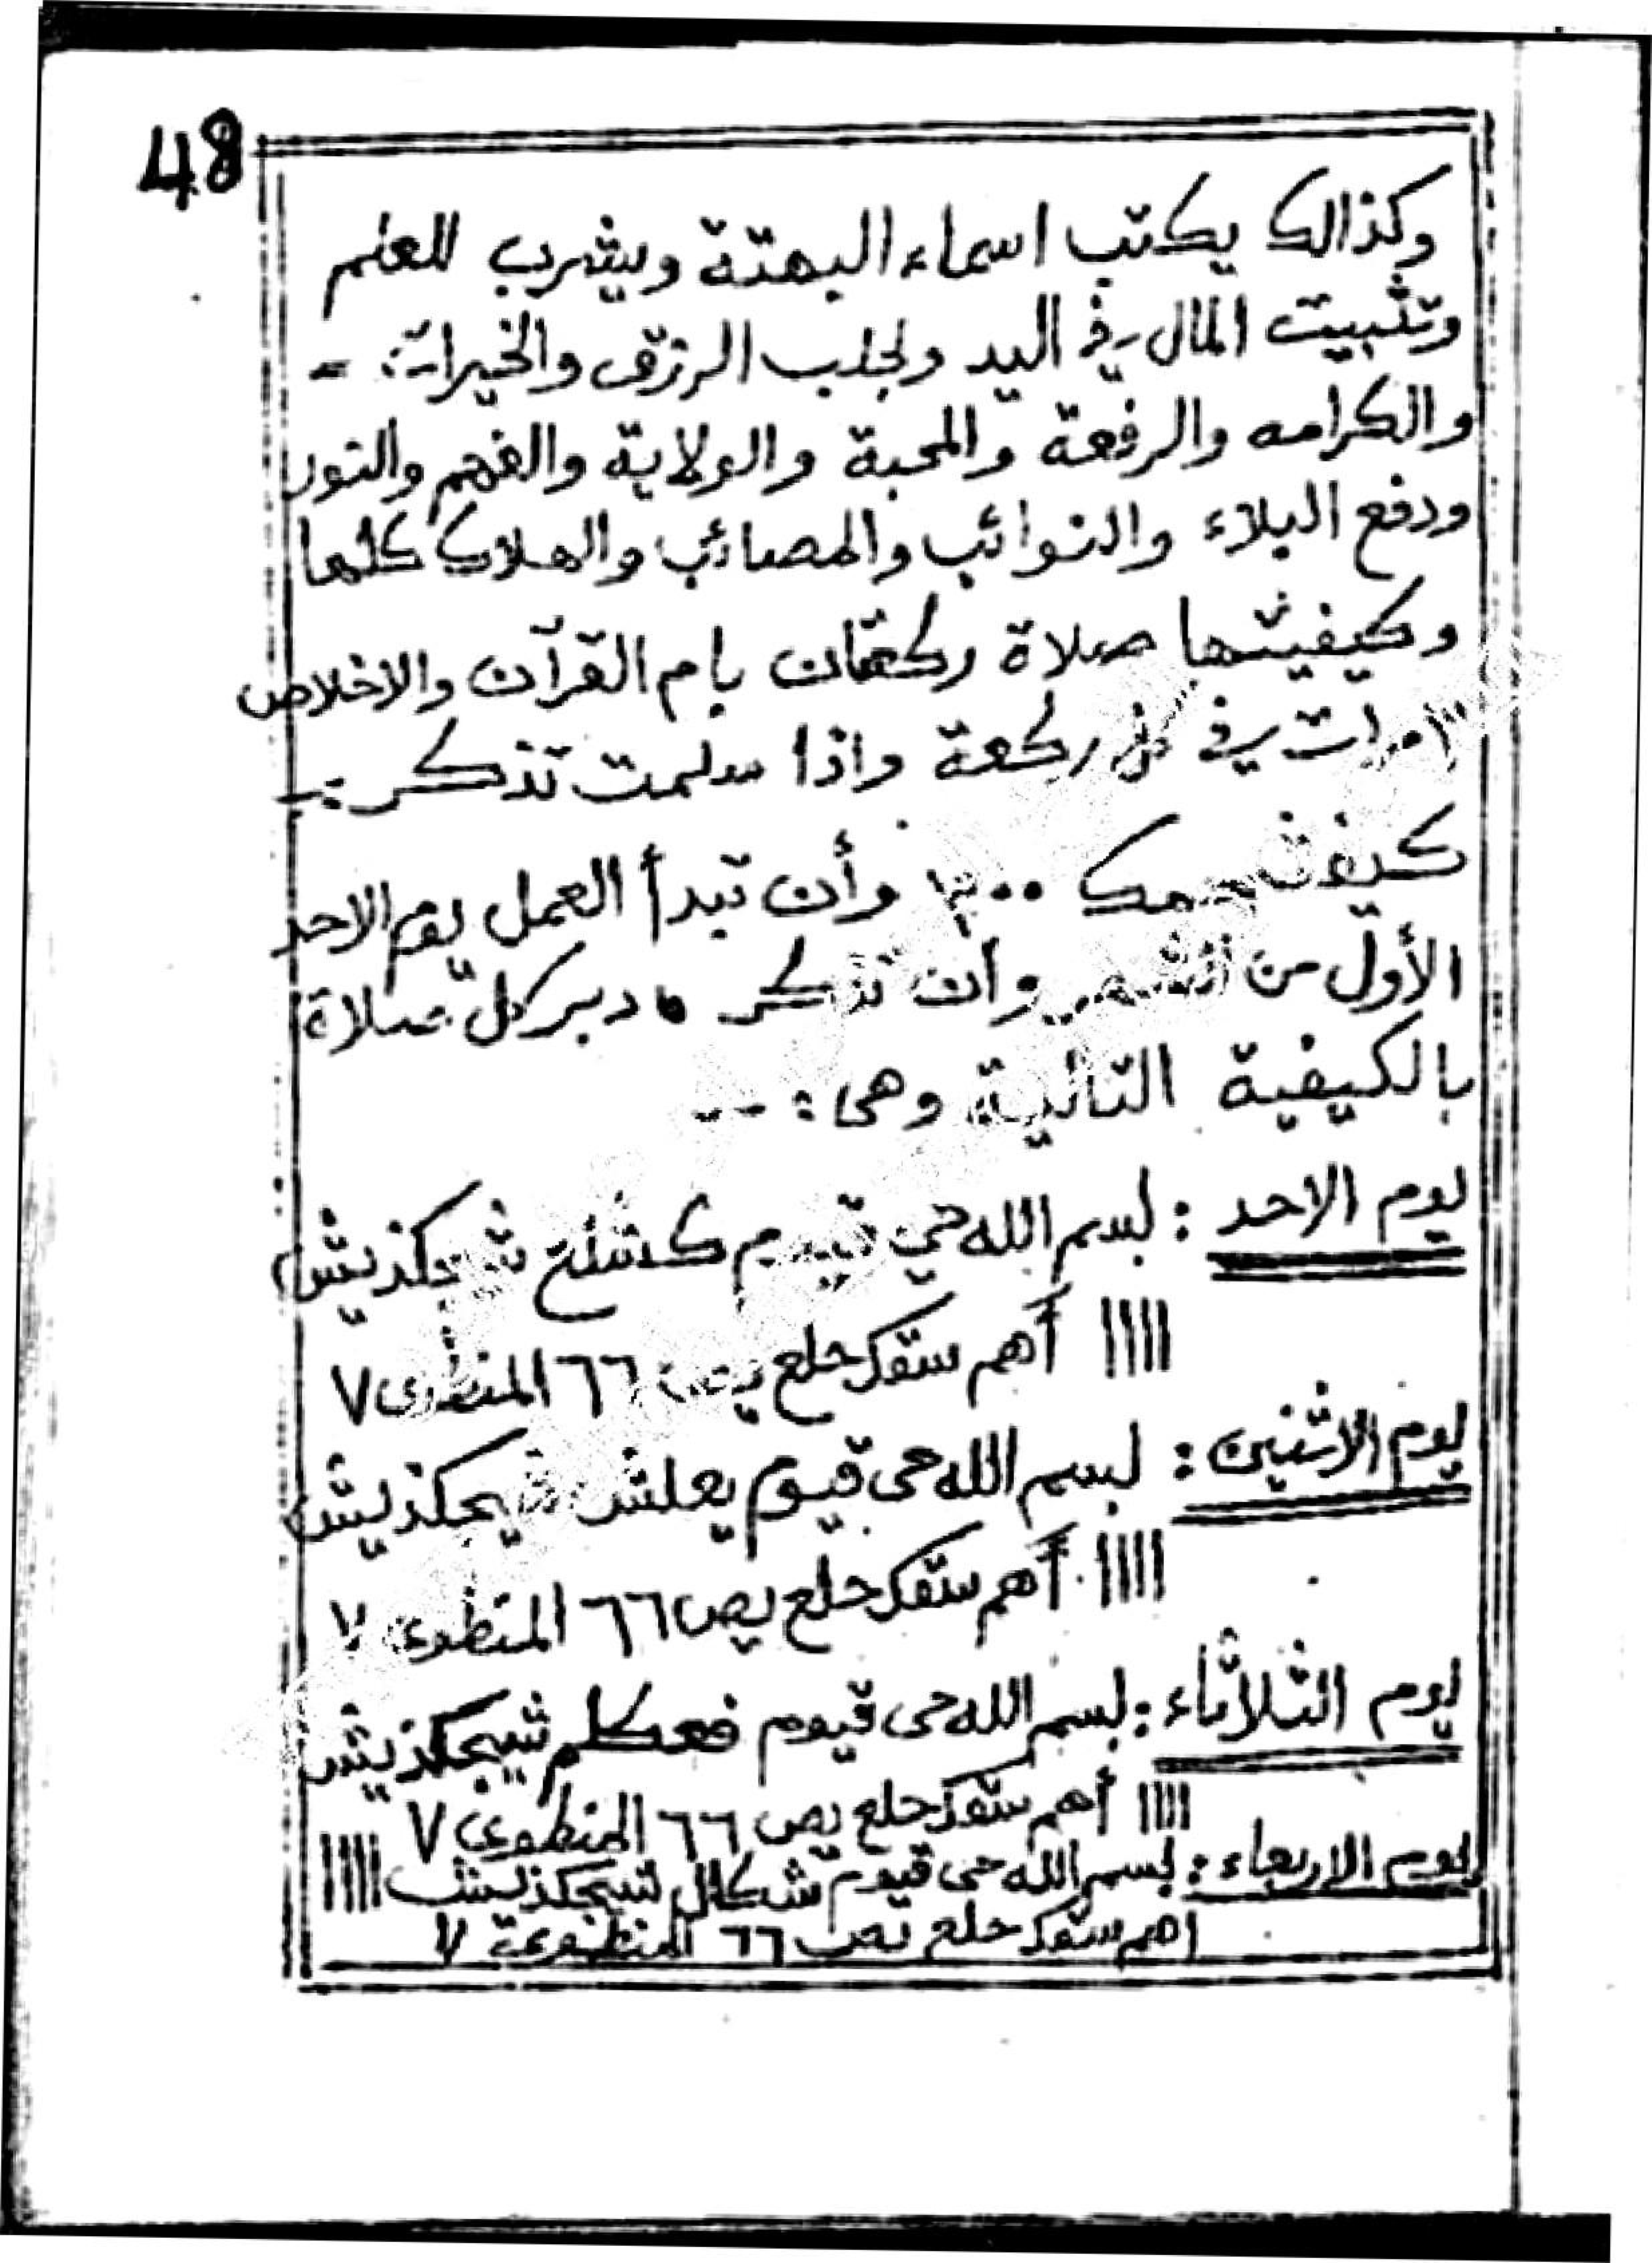 48
وكذالك يكتب اسماء البهتة ويشرب للعلم
وتثبيت المال في اليد ولجلب الرزق والخيرات -
والكرامه والرفعة والمحبة والولاية والفهم والنور
ودفع البلاء والنوائب والمصائب والهلاك كلها
وكيفيتها صلاة ركعتان بام القرآن والاخلاص
مرات في كل ركعة واذا سلمت تذكر
٣٠٠ وأن تبدأ العمل يوم الاحد
الأول من الشهر وأن تذكر دبر كل صلاة
بالكيفية التالية وهى : --
يوم الاحد : بسم الله حي قيوم
|||| أهم سقك حلع يص ٦٦ المنطوى ٧
يوم الاثنين : بسم الله حى قيوم يعلش شيحكذيش
|||| أهم سقك حلع يص ٦٦ المنطوى ٧
يوم الثلاثاء : بسم الله حى قيوم فعكلم شيحكذيش
|||| أهم سقك حلع يص ٦٦ المنطوى ٧
يوم الاربعاء : بسم الله حى قيوم شكال شيحكذيش ||||
اهم سقك حلع يص ٦٦ ٧